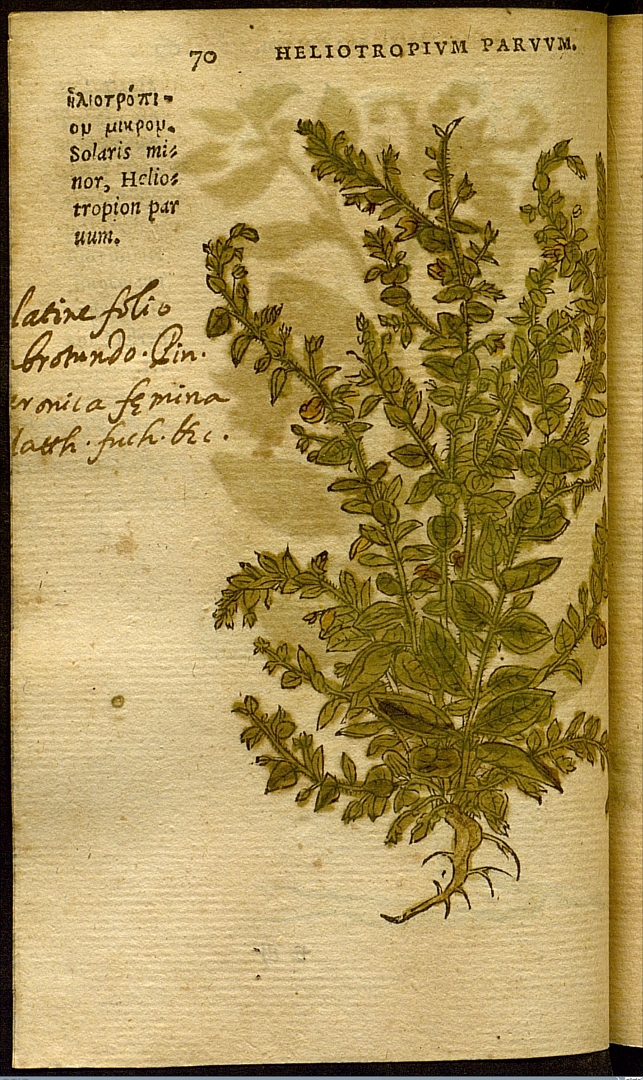 70 HELIOTROPIVM PARVVM.
ἡλιοτρόπι-
ομ μικρομ.
Solaris mi-
nor, Helio-
tropion par
uum.
latine folio
brotundo. Pin.
ronica fęmina
atth. fuch. &c.